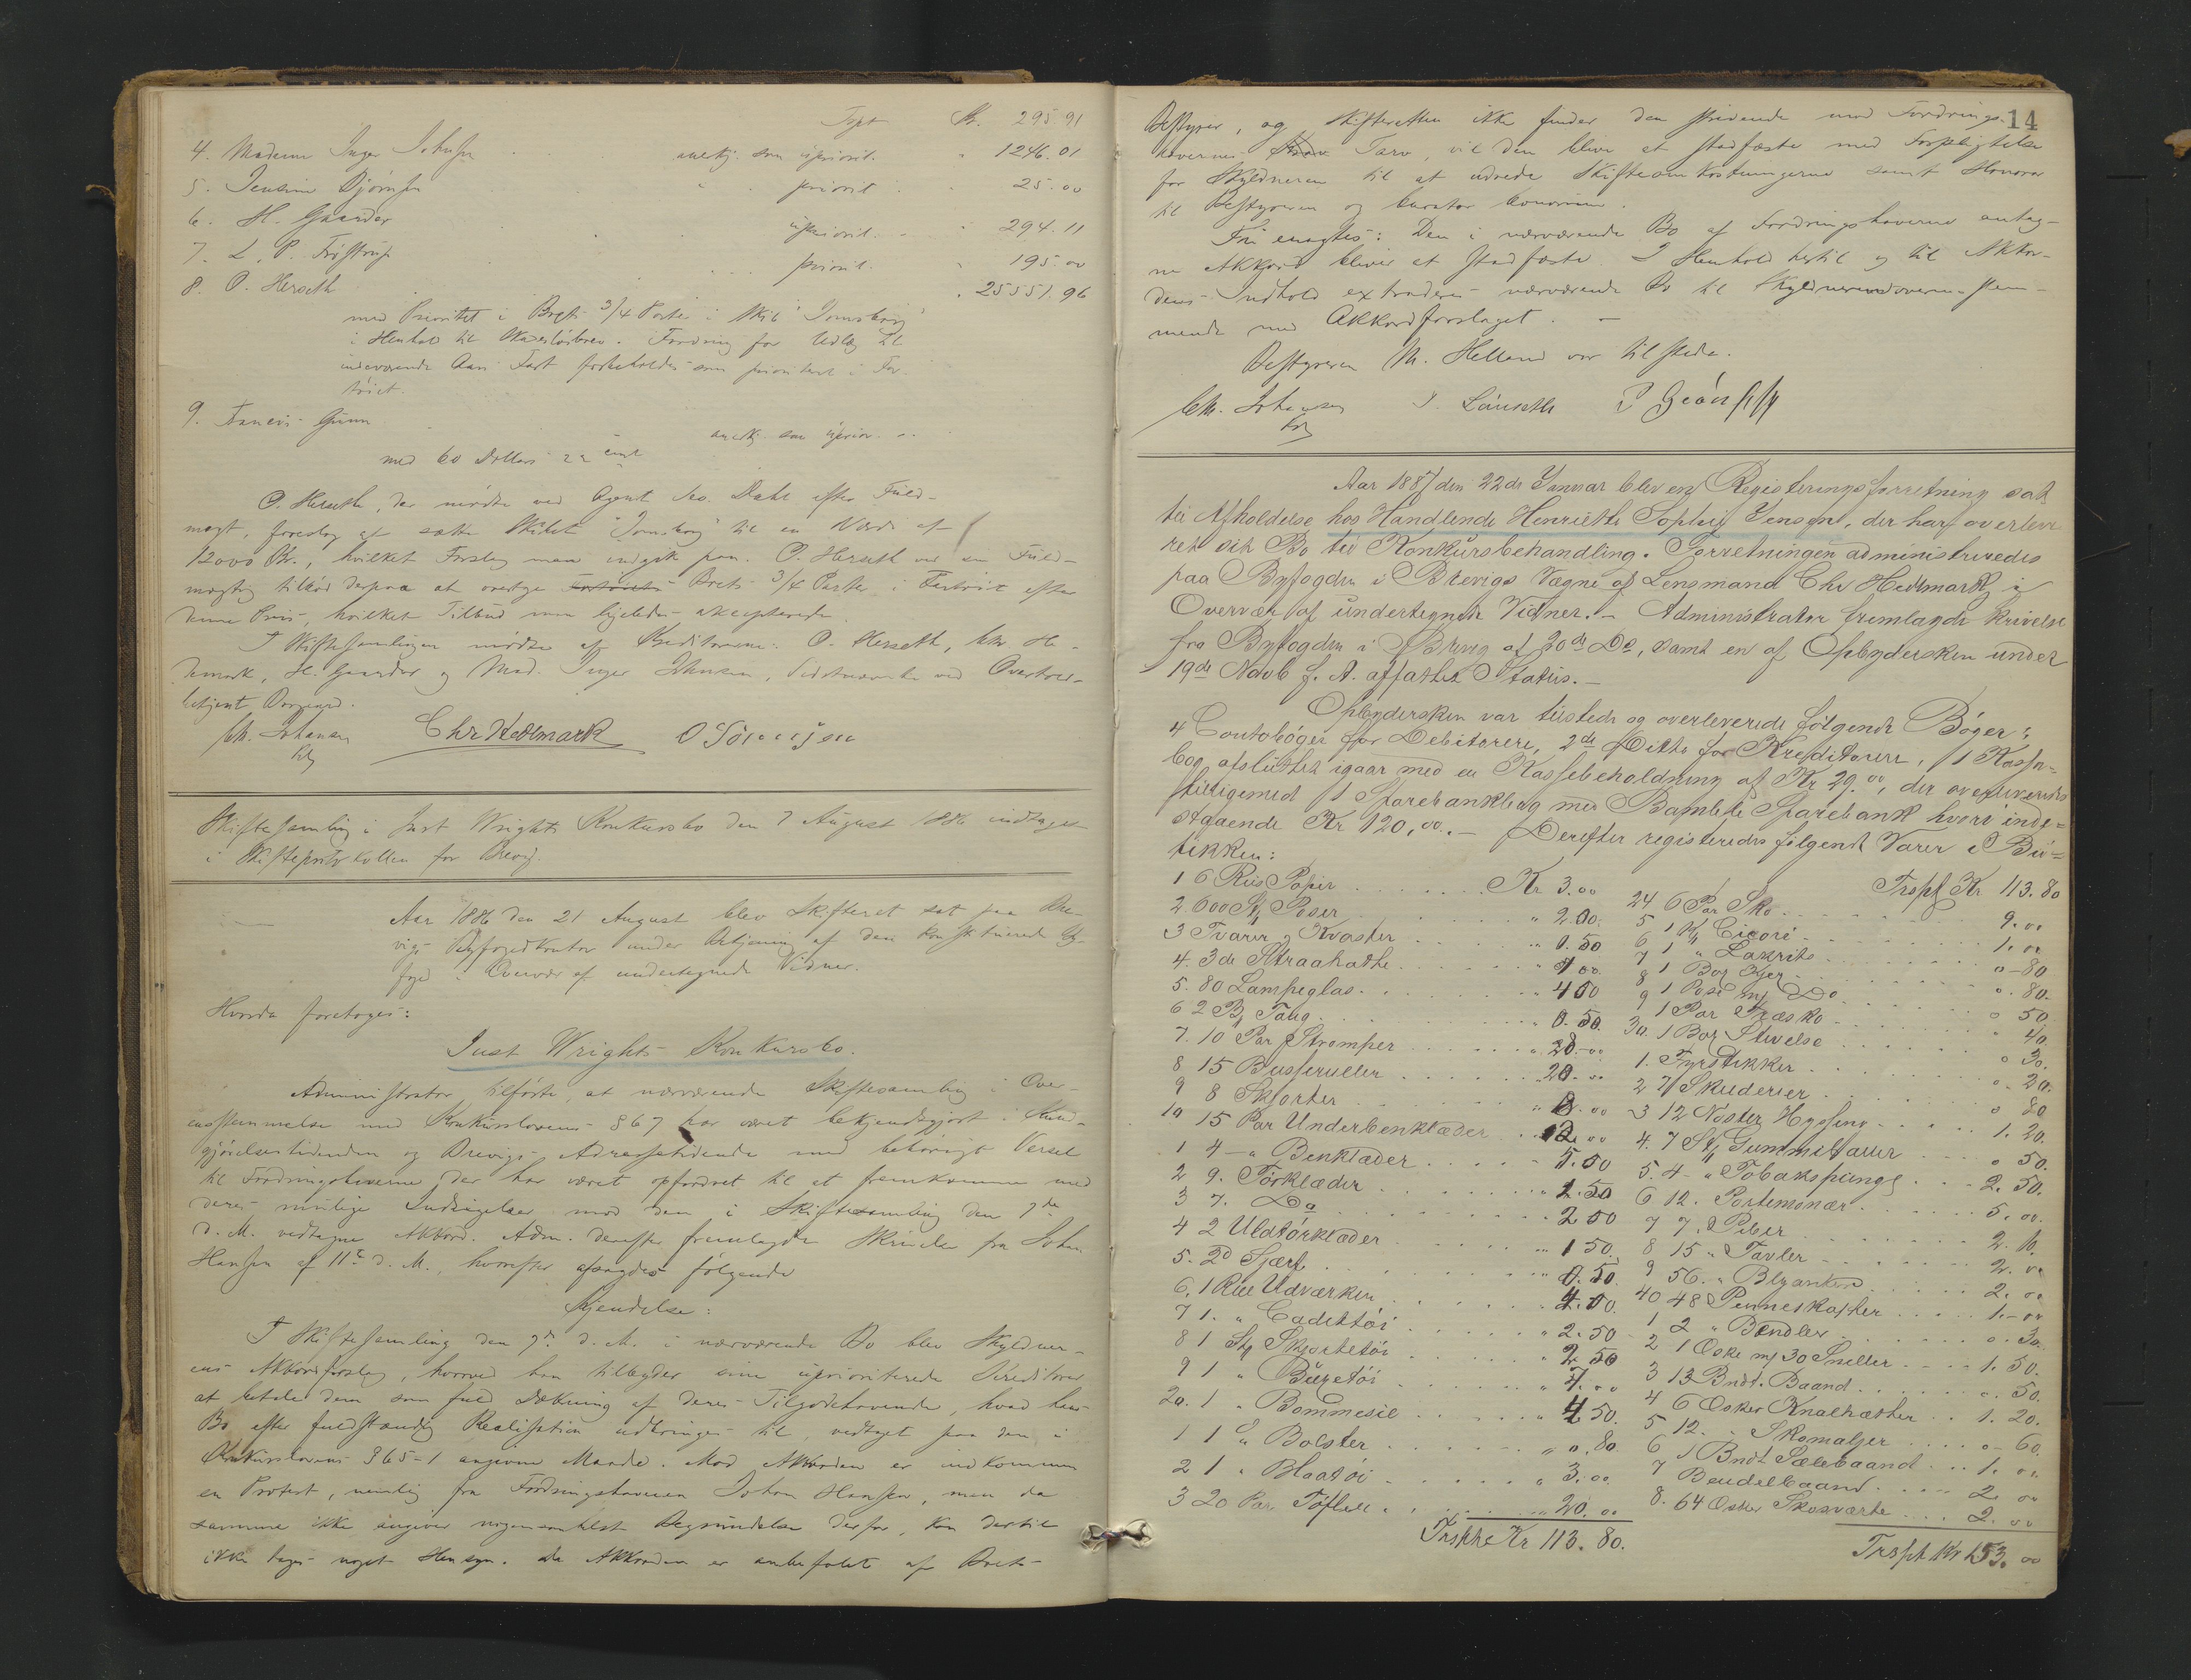 Trspt Kr. 295.91
4. Madame Inger Johnsen anerkj. som upriorit. " 1246.01
5. Jensine Bjørnsen " " priorit. " 25.00
6. H. Gaarder upriorit. " 294.11
7. L. P. Frøstrup priorit. " 195.00
8. O. Herseth " 25551.96
med Prioritet i Boets 3/4 Parter i Skib "Jomsborg"
i Henhold til Skadesløsbrev. Fordring for Udlæg til
indeværende Aars Fart forbeholdes som prioritert i Far-
tøiet.
9. Francis Gunn anerkj. som uprior. "
med 60 Dollars 22 cent
O. Herseth, der mødte ved Agent Dahl efter Fuld-
magt, foreslog at sætte Skibet "Jomsborg" til en Værdi af
12000 Kr., hvilket Forslag man indgik paa. O. Herseth ved sin Fuld-
mægtig tilbød derpaa at overtage Boets 3/4 Parter i Fartøiet efter
denne Pris, hvilket Tilbud man ligeledes akcepterede.
I Skiftesamlingen mødte af Kreditorerne: O. Herseth, Chr He-
demark, H. Gaarder og Mad. Inger Johnsen, sidstnævnte ved Overrets-
betjent
Chr. Johansen Chr Hedmark O Tönnesen
fm
Skiftesamling i Just Wrights Konkursbo den 7 August 1886 indtaget
i Skifteprotokollen for Brevig.
Aar 1886 den 21 August blev Skifteret sat paa Bre-
vigs Byfogedkontor under Betjening af den konstituerede By-
foged i Overvær af undertegnede Vidner.
Hvorda foretoges:
Just Wrights Konkursbo.
Administrator tilførte, at nærværende Skiftesamling i Over-
ensstemmelse med Konkurslovens § 67 har været bekjendtgjort i Kund-
gjørelsestidenden og Brevigs Adressetidende med behørigt Varsel
til Fordringshaverne, der har været opfordret til at fremkomme med
deres mulige Indsigelser mod den i Skiftesamling den 7de
d. M. vedtagne Akkord. Adm. derefter fremlagde Skrivelse fra Johan
Hansen af 11te d. M., hvorefter afsagdes følgende
Kjendelse:
I Skiftesamling den 7de d. M. i nærværende Bo blev Skyldner-
ens Akkordforslag, hvorved han tilbyder sine uprioriterede Kreditorer
at betale dem som fuld Dækning af deres Tilgodehavende, hvad hans
Bo efter fuldstændig Realisation udbringes til, vedtaget paa den i
Konkurslovens § 65-1 angivne Maade. Mod Akkorden er indkommen
en Protest, nemlig fra Fordringshaveren Johan Hansen, men da
samme ikke angiver nogensomhelst Begrundelse derfor, kan dertil
ikke tages noget Hensyn. Da Akkorden er anbefalet af Boets
14
Bestyrer, og Skifteretten ikke finder den stridende mod Fordrings-
havernes Tarv, vil den blive at stadfæste med Forpligtelse
for Skyldneren til at udrede Skifteomkostningerne samt Honorar
til Bestyreren og curator bonorum.
Thi eragtes: Den i nærværende Bo af Fordringshaverne antag-
ne Akkord bliver at stadfæste. I Henhold hertil og til Akkor-
dens Indhold extraderes nærværende Bo til Skyldneren overensstem-
mende med Akkordforslaget. —
Bestyreren M. Helland var tilstede.
Chr. Johansen J. Lønseth P Grönsth
fm
Aar 1887 den 22de Januar blev en Registeringsforretning sat
til Afholdelse hos Handlende Henriette Sophie Jensen, der har overleve-
ret sit Bo til Konkursbehandling. Forretningen administreredes
paa Byfogden i Brevigs Vægne af Lensmand Chr Hedmark, i
Overvær af undertegnede Vidner. — Administrator fremlagde Skrivelse
fra Byfogden i Brevig af 20de Do, samt en af Opbydersken under
19de Novb f. A. affattet Status. —
Opbydersken var tilstede og overleverede følgende Bøger:
4 Contobøger for Debitorere, 2de Ditto for Kreditorer, 1 Kasse-
bog afsluttet igaar med en Kassebeholdning af Kr 29.00, der overleveredes
tilligemed 1 Sparebankbog med Bamble Sparebank hvori inde-
staaende Kr 120,00. — Derefter registeredes følgende Varer i Bu-
tikken:
1 6 Riis Papir . . . Kr 3.00
2 600 St Poser . . . " 2.00
3 Tvarer og Kvaster . . . " 0.50
4. 3de Straahatte . . . " 1.00
5. 80 Lampeglas . . . " 4 00
6 2 B Taug . . . " 0.50.
7. 10 Par Strømper . . . " 20.00
8 15 Busseruller . . . " 20.00
9 8 Skjorter . . . " 8.00
10 15 Par Underbenklæder . . . 12.00
1 4 — " Benklæder . . . " 5.50
2 9. Forklæder . . . " 2.50
3 7. Do . . . " 2 50
4 2 Uldtørklæder . . . " 1 50.
5. 2 Sjærf . . . " 0.50.
6. 1 Rul Udværken . . . " 4.00.
7 1. " Cadettøi . . . " 2.50
8 1 St Skjortetøi . . . " 2.50
9 1 " Buretøi . . . " 4.00
20. 1 " Bommesie . . . " 4 50.
1 1 " Bolster . . . " 0.80.
2 1 " Blaatøi . . . " 3.00
3 20 Par Tøfler . . . " 20.00
Trspt Kr 113.80.
Trspt Kr 113.80
24 6 Par Sko . . . 9.00
5 1 K Cicori . . . 1.00
6 1 " Lakrits . . . 0-80
7 1 Bog . . . 0.80.
8 1 Pose m/ Do . . . 0 50.
9 1 Par Træsko . . . " 40.
30. 1 Bog Stivelse . . . 0 30.
1. Fyrstikker . . . 0.20.
2 7 Skuderier . . . 0 80
3 12 Nøster Hyssing . . . 1.20.
4. 7 St Gummitauer . . . 0 50.
5. 4 — " Tobakspunge . . . 2.50.
6 12. Portemonær . . . 5.00.
7 7. " Piber . . . 2.10.
8 15 " Tavler . . . 2.00
9 56. " Blyanter . . . 2.00
40 48 Penneskafter . . . 1.-00
1 2 " Bendler . . . 0.30.
2 1 Æske m/ 30 Sneller . . . 1.50.
3 13 Bndt. Baand . . . 0.50.
4 6 Æsker Knaehatter . . . 1.20.
5 12. " Skomaljer . . . 0-60.
6 1 Bndt Sælebaand . . . 1.00
7 Bendelbaand . . . 2.00
8. 64 Æsker Skosværte . . . 2.00
Trspt Kr 153.00